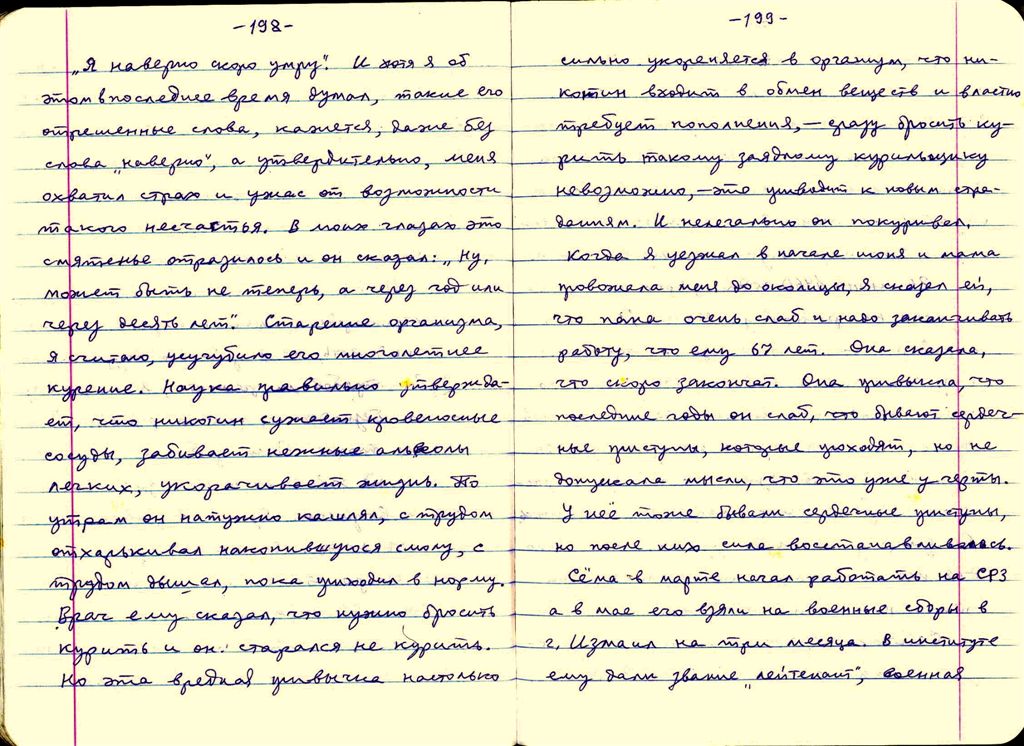 -198-
„Я наверно скоро умру". И хотя я об
этом в последнее время думал, такие его
отрешенные слова, кажется, даже без
слова „наверно", а утвердительно, меня
охватил страх и ужас от возможности
такого несчастья. В моих глазах это
смятенье отразилось и он сказал: „Ну,
может быть не теперь, а через год или
через десять лет". Старение организма,
я считаю, усугубило его многолетнее
курение. Наука правильно утвержда-
ет, что никотин сужает кровеносные
сосуды, забивает нежные альволы
легких, укорачивает жизнь. По
утрам он натужно кашлял, с трудом
отхаркивал накопившуюся смолу, с
трудом дышал, пока приходил в норму.
Врач ему сказал, что нужно бросить
курить и он старался не курить.
Но эта вредная привычка настолько
-199-
сильно укореняется в организм, что ни-
котин входит в обмен веществ и властно
требует пополнения, — сразу бросить ку-
рить такому заядлому курильщику
невозможно, — это приводит к новым стра-
даниям. И нелегально он покуривал.
Когда я уезжал в начале июня и мама
провожала меня до околицы, я сказал ей,
что папа очень слаб и надо заканчивать
работу, что ему 67 лет. Она сказала,
что скоро закончат. Она привыкла, что
последние годы он слаб, что бывают сердеч-
ные приступы, которые проходят, но не
допускала мысли, что это уже у черты.
У неё тоже бывали сердечные приступы,
но после них сила восстанавливалась.
Сёма в марте начал работать на СРЗ
а в мае его взяли на военные сборы в
г. Измаил на три месяца. В институте
ему дали звание „лейтенант", военная